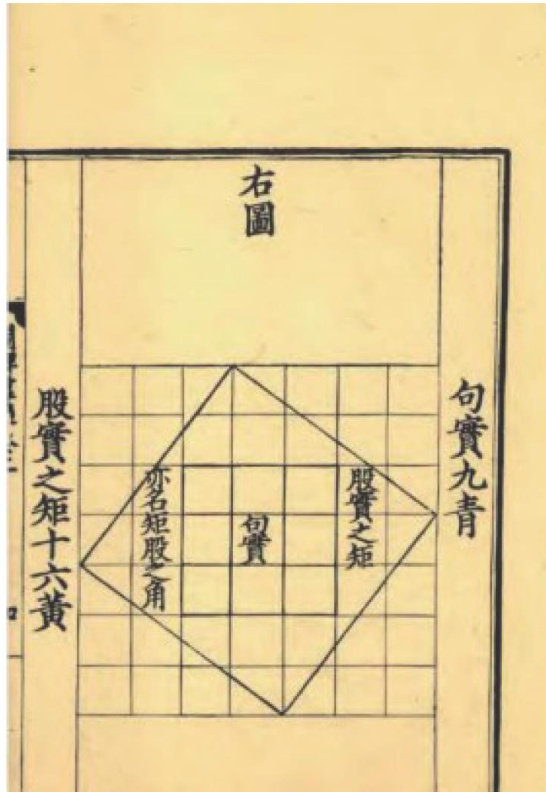 句實九青
右圖
股實之矩
句實
亦名矩股之角
股實之矩十六黃